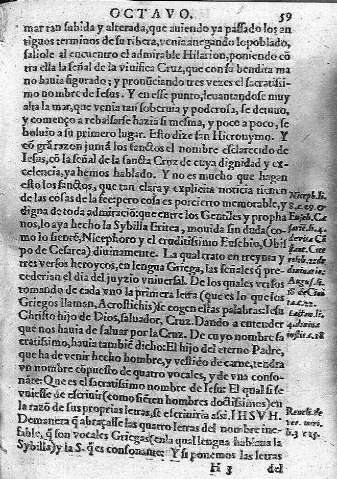 OCTAVO. 59
mar tan subida y alterada, que auiendo ya passado los an
tiguos terminos de su ribera, venia anegando lo poblado,
saliole al encuentro el admirable Hilarion, poniendo cõ
tra ella la señal de la viuifica Cruz, que con su bendita ma
no hauia figurado; y pronũciando tres vezes el sacratissi-
mo nombre de Iesus. Y en esse punto, leuantandose muy
alta la mar, que venia tan soberuia y poderosa, se detuuo,
y començo a rebalsarse hazia si mesma, y poco a poco, se
boluio a su primero lugar. Esto dize san Hieronymo. Y
cõ grã razon juntã los sanctos el nombre esclarecido de
Iesus, cõ la señal de la sancta Cruz de cuya dignidad y ex-
celencia, ya hemos hablado. Y no es mucho que hagan
esto los sanctos, que tan clara y explicita noticia tienen
de las cosas de la fee: pero cosa es por cierto memorable, y
digna de toda admiraciõ: que entre los Gentiles y propha
nos, lo aya hecho la Sibylla Eritrea, mouida sin duda (co-
mo lo siente, Nicephoro y el eruditissimo Eusebio, Obis
po de Cesarea) diuinamente. La qual trato en treynta y
tres versos heroycos, en lengua Griega, las señales q̃ pre-
cederian el dia del juyzio vniuersal. De los quales versos
tomando de cada vno la primera letra (que es lo que los
Griegos llaman, Acrostichis) se cogen ellas palabras: Iesu
Christo hijo de Dios, saluador, Cruz. Dando a entender
que nos hauia de saluar por la Cruz. De cuyo nombre sa
cratissimo, hauia tambiẽ dicho: El hijo del eterno Padre,
que ha de venir hecho hombre, y vestido de carne, tendra
vn nombre cõpuesto de quatro vocales, y de vna conso-
nãte: Que es el sacratissimo nombre de Iesu: El qual si se
vuiesse de escriuir (como siẽten hombres doctissimos) en
la razõ de sus proprias letras, se escriuiria assi. IHSVH.
Demanera q̃ abraçasse las quatro letras del nombre ine-
fable, q̃ son vocales Griegas (en la qual lengua hablaua la
Sybilia) y la S. q̃ es consonante: Y si ponemos las letras
H 3 del
Niceph. li.
Euseb. Cæ
August. li.
Reuch. de
ver. miri.
li. 3 c 15.